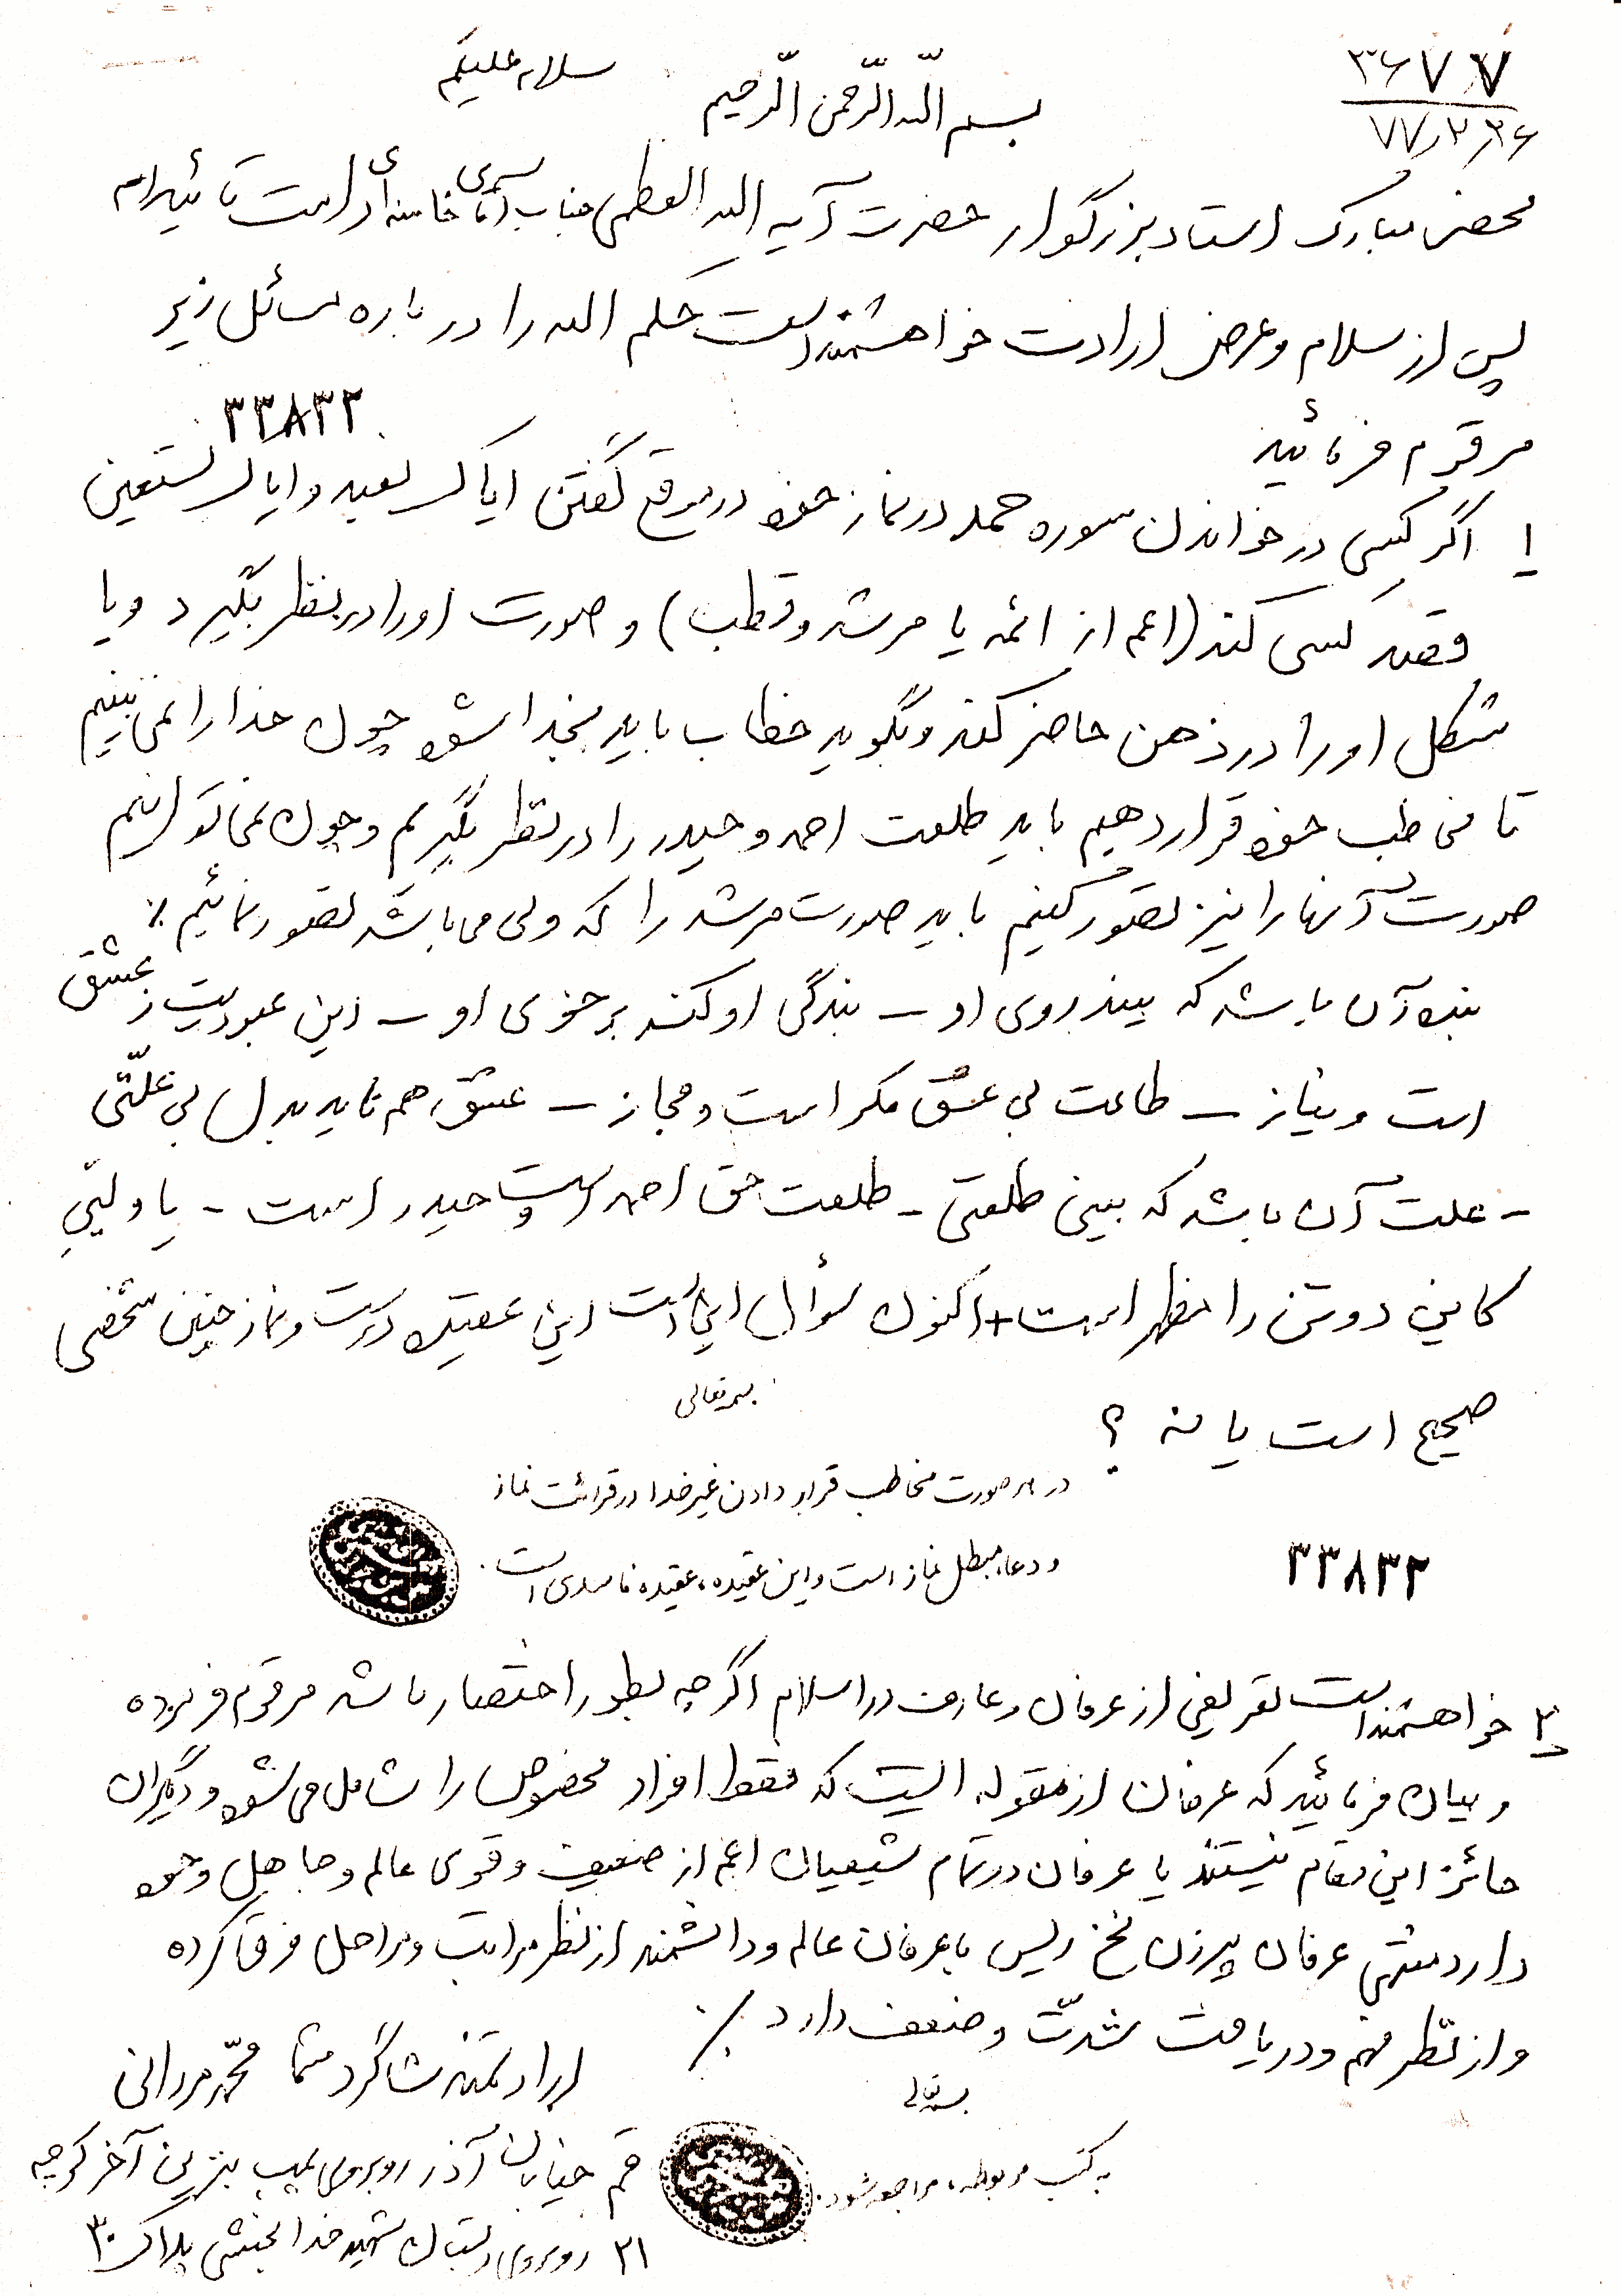 ۳۶۷۷
۷۷/۲/۲۶
سلام علیکم
بسم اللّه الرّحمن الرّحیم
محضر مبارک استاد بزرگوار حضرت آیه الله العظمی جناب آقای خامنه‌ای دامت تائیداته
پس از سلام و عرض ارادت خواهشمند است حکم الله را در باره مسائل زیر
مرقوم فرمائید
۳۳۸۳۲
۱ اگر کسی در خواندن سوره حمد در نماز خود در موقع گفتن ایاک نعبد و ایاک نستعین
قصد کسی کند (اعم از ائمه یا مرشد و قطب) و صورت او را در نظر بگیرد و یا
شکل او را در ذهن حاضر کند و بگوید خطاب باید بخدا شود چون خدا را نمی بینیم
تا مخاطب خود قرار دهیم باید طلعت احمد و حیدر را در نظر بگیریم و چون نمی توانیم
صورت آنها را نیز تصوّر کنیم باید صورت مرشد را که ولی می باشد تصور نمائیم ٪
بنده آن باشد که بیند روی او – بندگی او کند بر خوی او – این عبودیت ز عشق
است و نیاز – طاعت بی عشق مکر است و مجاز – عشق هم ناید بدل بی علّتی
– علت آن باشد که بینی طلعتی – طلعت حق احمد است و حیدر است – یا ولیّی
کاین دوتن را مظهر است + اکنون سؤال این است این عقیده درست و نماز چنین شخصی
صحیح است یا نه ؟
بسمه تعالی
در هر صورت مخاطب قرار دادن غیر خدا در قرائت نماز
و دعا، مبطل نماز است و این عقیده، عقیده فاسدی است.
۳۳۸۳۲
۲ خواهشمند است تعریفی از عرفان و عارف در اسلام اگرچه بطور اختصار باشد مرقوم فرموده
و بیان فرمائید که عرفان از مقوله ایست که فقط افراد مخصوص را شامل می شود و دیگران
حائز این مقام نیستند یا عرفان در تمام شیعیان اعم از ضعیف و قوی عالم و جاهل وجود
دارد منتهی عرفان پیرزن نخ ریس با عرفان عالم و دانشمند از نظر مراتب و مراحل فرق کرده
و از نظر فهم و دریافت شدّت و ضعف دارد ٪
ارادتمند شاگرد شما محمّد مردانی
بسمه تعالی
به کتب مربوطه، مراجعه شود.
قم خیابان آذر روبروی پمپ بنزین آخر کوچه
۳۱ روبروی دبستان شهید خدابخشی پلاک ۳۰